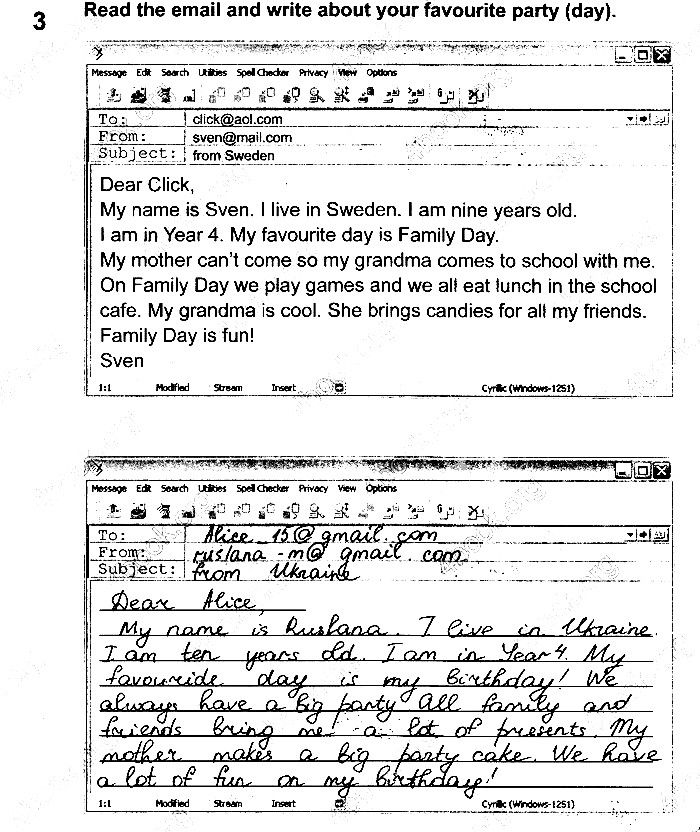 3
Read the email and write about your favourite party (day).
Message Edit Search Utilities Spell Checker Privacy View Options
To: click@aol.com
From: sven@mail.com
Subject: from Sweden
Dear Click,
My name is Sven. I live in Sweden. I am nine years old.
I am in Year 4. My favourite day is Family Day.
My mother can't come so my grandma comes to school with me.
On Family Day we play games and we all eat lunch in the school
cafe. My grandma is cool. She brings candies for all my friends.
Family Day is fun!
Sven
1:1 Modified Stream Insert Cyrillic (Windows-1251)
Message Edit Search Utilities Spell Checker Privacy View Options
To: Alice_15@gmail.com
From: ruslana-m@gmail.com
Subject: from Ukraine
Dear Alice,
My name is Ruslana. I live in Ukraine.
I am ten years old. I am in Year 4. My
favouride day is my Birthday! We
always have a big party All family and
friends bring me a lot of presents. My
mother makes a big party cake. We have
a lot of fun on my Birthday!
1:1 Modified Stream Insert Cyrillic (Windows-1251)